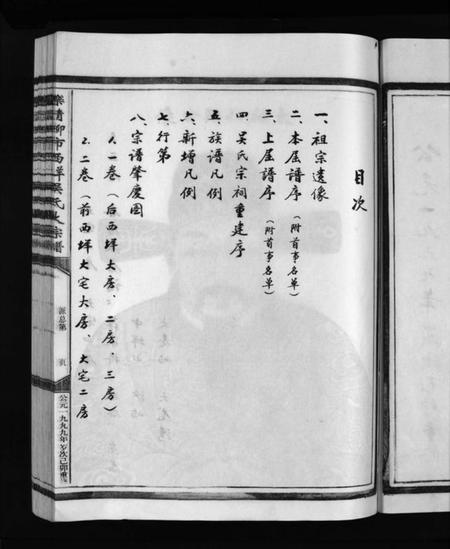 目次
一、祖宗遗像
二、本届谱序（附首事名单）
三、上届谱序（附首事名单）
四、吴氏宗祠重建序
五、族谱凡例
六、新增凡例
七、行第
八、宗谱肇庆图
1、一卷（后西垟大房、二房、三房）
2、二卷（前西垟大宅大房、大宅二房
乐清柳市西垟吴氏大宗谱
派总第 页
公元一九九九年岁次己卯重